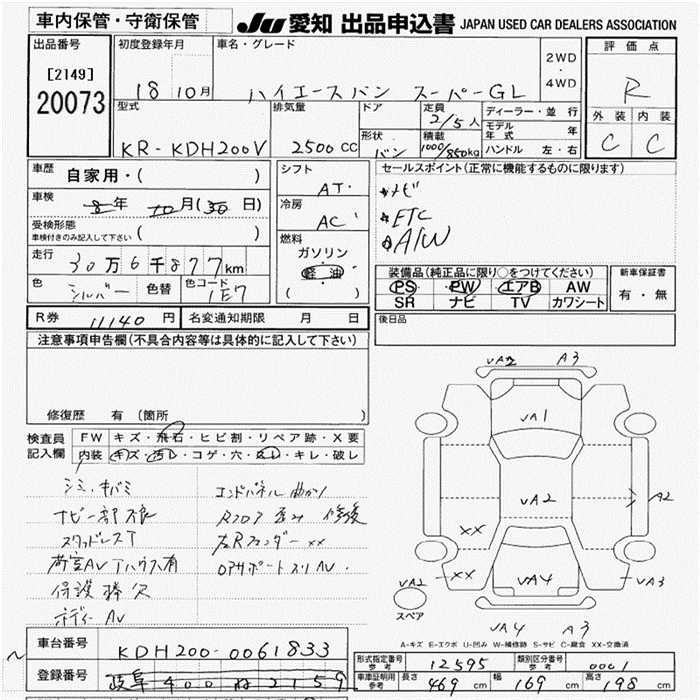 車内保管・守衛保管
JU 愛知 出品申込書 JAPAN USED CAR DEALERS ASSOCIATION
出品番号
[2149]
20073
初度登録年月
18 10月
車名・グレード
ハイエースバン スーパーGL
2WD
・
4WD
評価点
R
外装 内装
C C
型式
KR-KDH200V
排気量
2500cc
ドア
形状
バン
定員
2/5人
積載
1000/850kg
ディーラー・並 行
モデル年式 年
ハンドル 左・右
車歴 自家用・( )
車検 8年 10月(30日)
受検形態
車検付きのみ記入して下さい ( )
走行 30万6千877km
色 シルバー 色替 色コード 1E7
シフト
AT
冷房
AC
燃料
ガソリン
軽油
( )
セールスポイント(正常に機能するものに限ります)
ナビ
ETC
A/W
装備品(純正品に限り○をつけてください)
PS PW エアB AW
SR ナビ TV カワシート
新車保証書
有・無
R券 11140円 名変通知期限 月 日
後日品
注意事項申告欄(不具合内容等は具体的に記入して下さい)
修復歴 有(箇所 )
検査員
記入欄
FW キズ・飛石・ヒビ割・リペア跡・X要
内装 キズ・汚レ・コゲ・穴・スレ・キレ・破レ
シミ・キバミ
ナビ一部不良
スタッドレスT
荷室AV Tハウス有
保護棒欠
ボデーAV
エンドパネル曲がり
Rフロア歪み 修復
左Rフェンダー××
VA2 A3
VA1
VA2
A2
××
××
VA4
VA3
VA2
スペア
VA4 A3
A-キズ E-エクボ U-凹み W-補修跡 S-サビ C-腐食 XX-交換済
車台番号 KDH200-0061833
登録番号 岐阜 400 ね 2159
形式指定番号 参考 12595 類別区分番号 参考 0001
車庫証明用 参考 長さ 469cm 幅 169cm 高さ 198cm